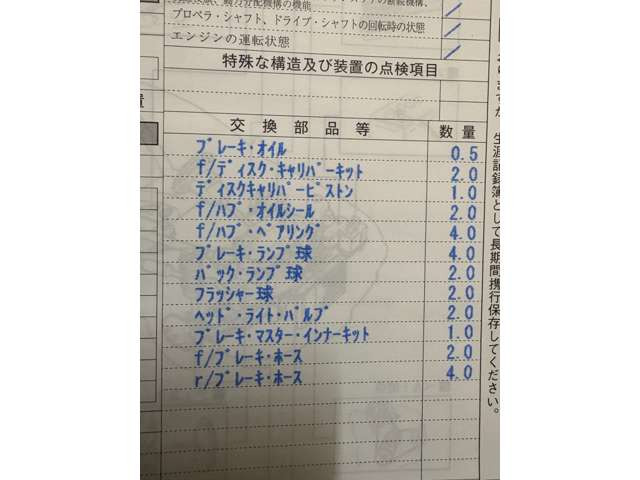 機構、動力分配機構の機能
プロペラ・シャフト、ドライブ・シャフトの回転時の状態
エンジンの運転状態
特殊な構造及び装置の点検項目
交換部品等 数量
ブレーキ・オイル 0.5
f/ディスク・キャリパーキット 2.0
ディスクキャリパーピストン 1.0
f/ハブ・オイルシール 2.0
f/ハブ・ベアリング 4.0
ブレーキ・ランプ球 4.0
バック・ランプ球 2.0
フラッシャー球 2.0
ヘッド・ライト・バルブ 2.0
ブレーキ・マスター・インナーキット 1.0
f/ブレーキ・ホース 2.0
r/ブレーキ・ホース 4.0
生涯記録簿として長期間携行保存してください。